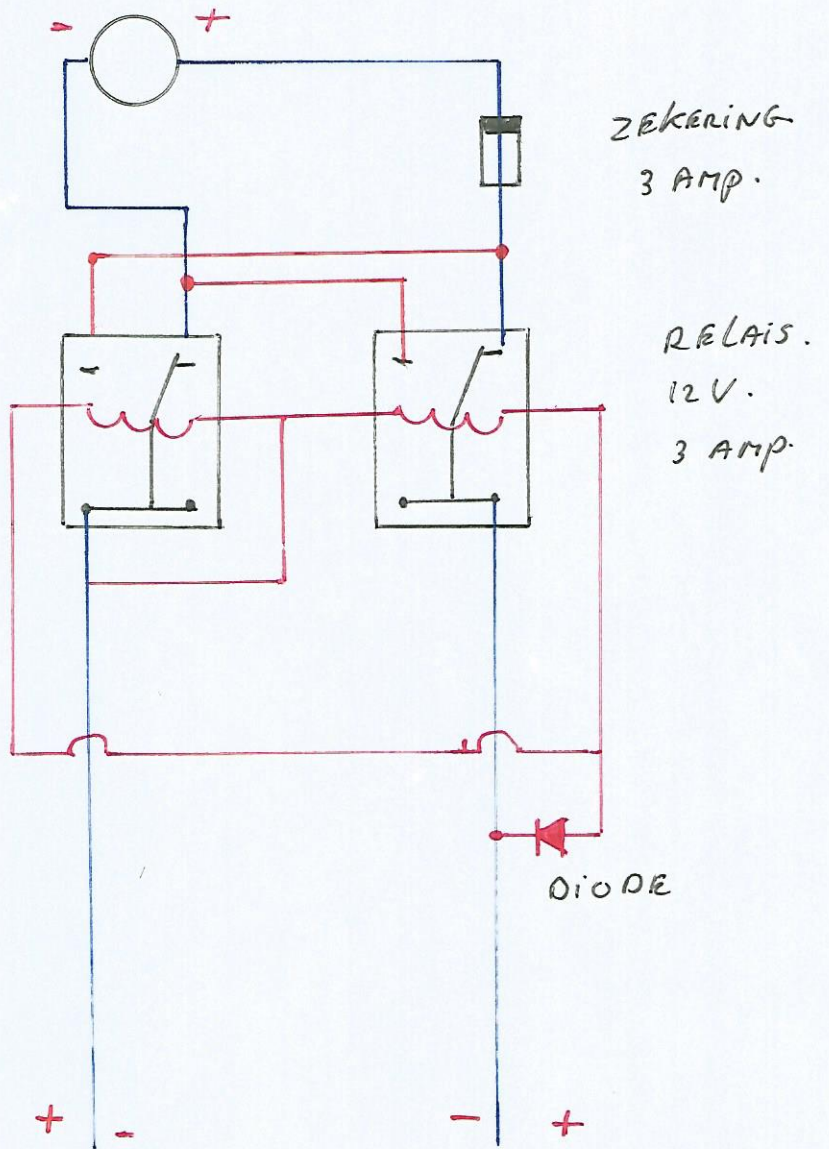 - +
ZEKERING
3 AMP.
RELAIS.
12 V.
3 AMP.
DiODE
+ - - +